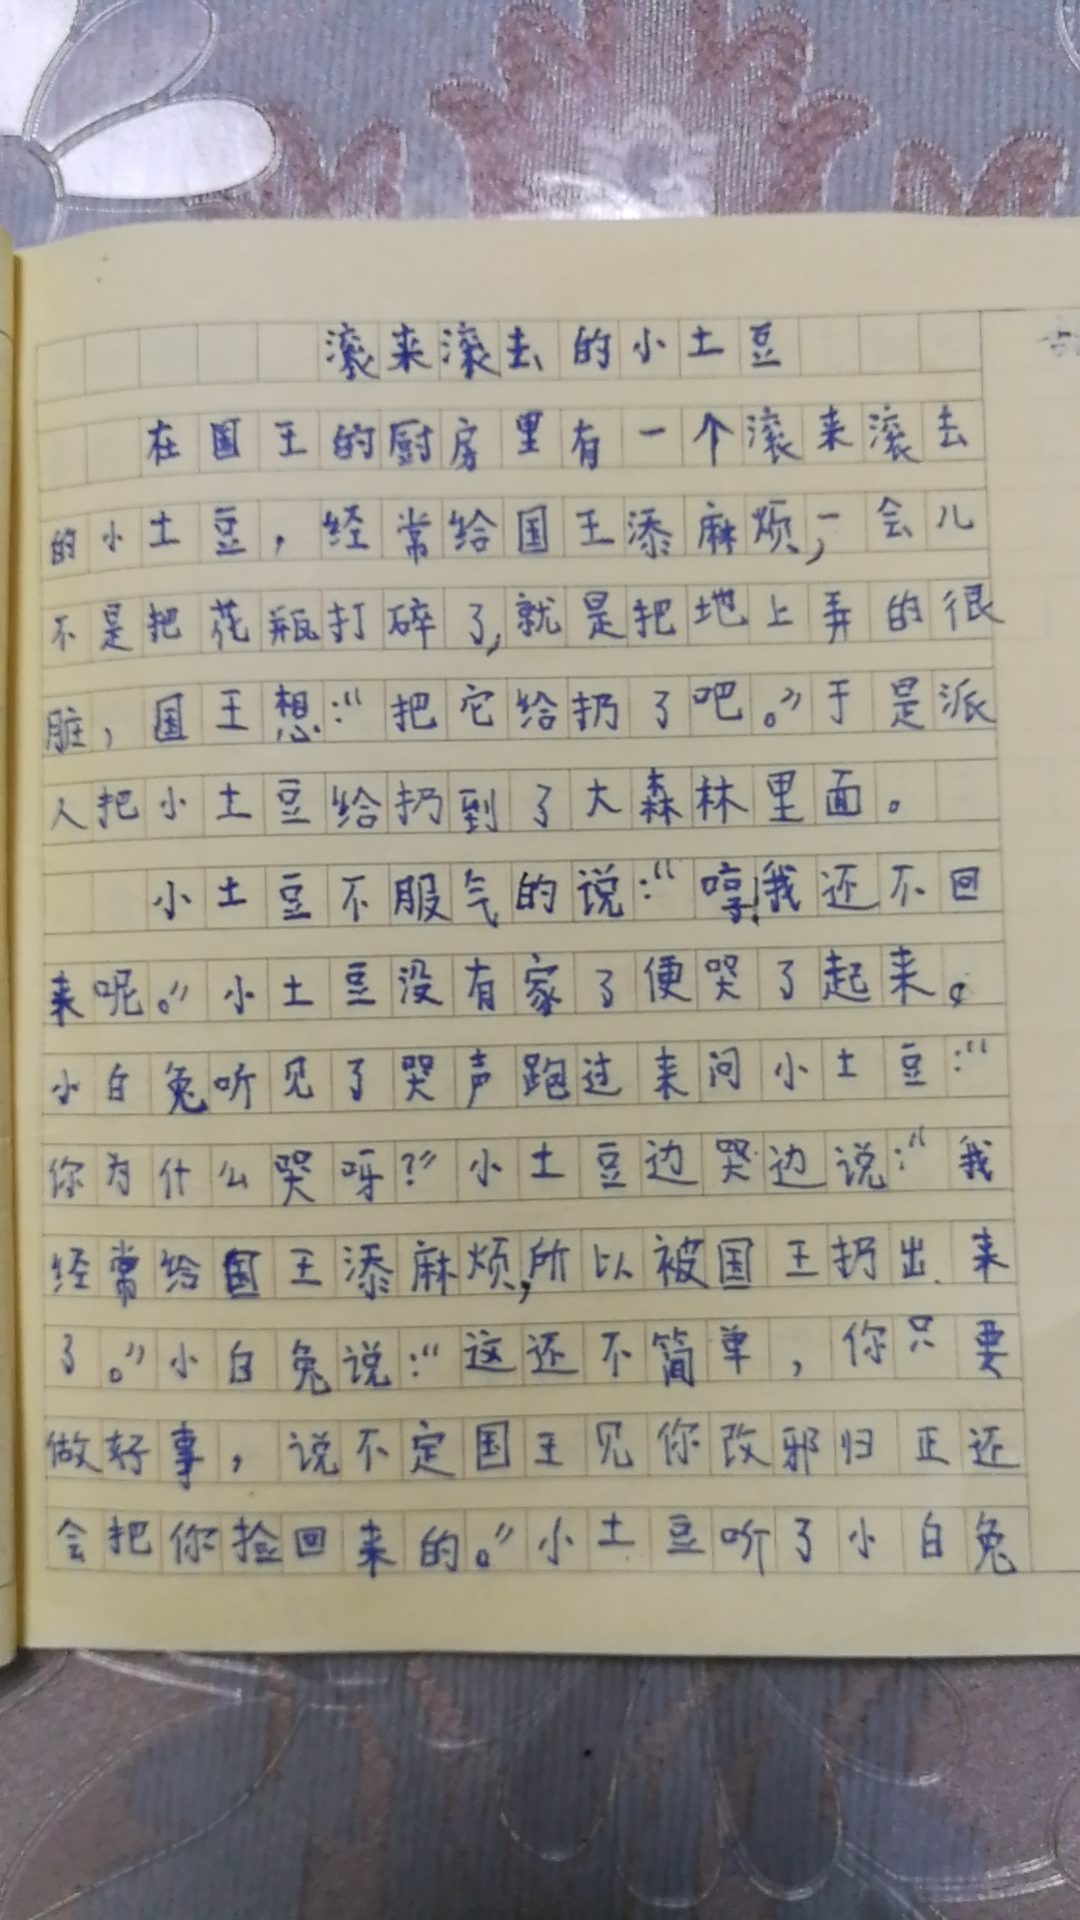 滚来滚去的小土豆
在国王的厨房里有一个滚来滚去
的小土豆，经常给国王添麻烦，一会儿
不是把花瓶打碎了，就是把地上弄的很
脏，国王想：“把它给扔了吧。”于是派
人把小土豆给扔到了大森林里面。
小土豆不服气的说：“哼！我还不回
来呢。”小土豆没有家了便哭了起来。
小白兔听见了哭声跑过来问小土豆：“
你为什么哭呀？”小土豆边哭边说：“我
经常给国王添麻烦，所以被国王扔出来
了。”小白兔说：“这还不简单，你只要
做好事，说不定国王见你改邪归正还
会把你捡回来的。”小土豆听了小白兔